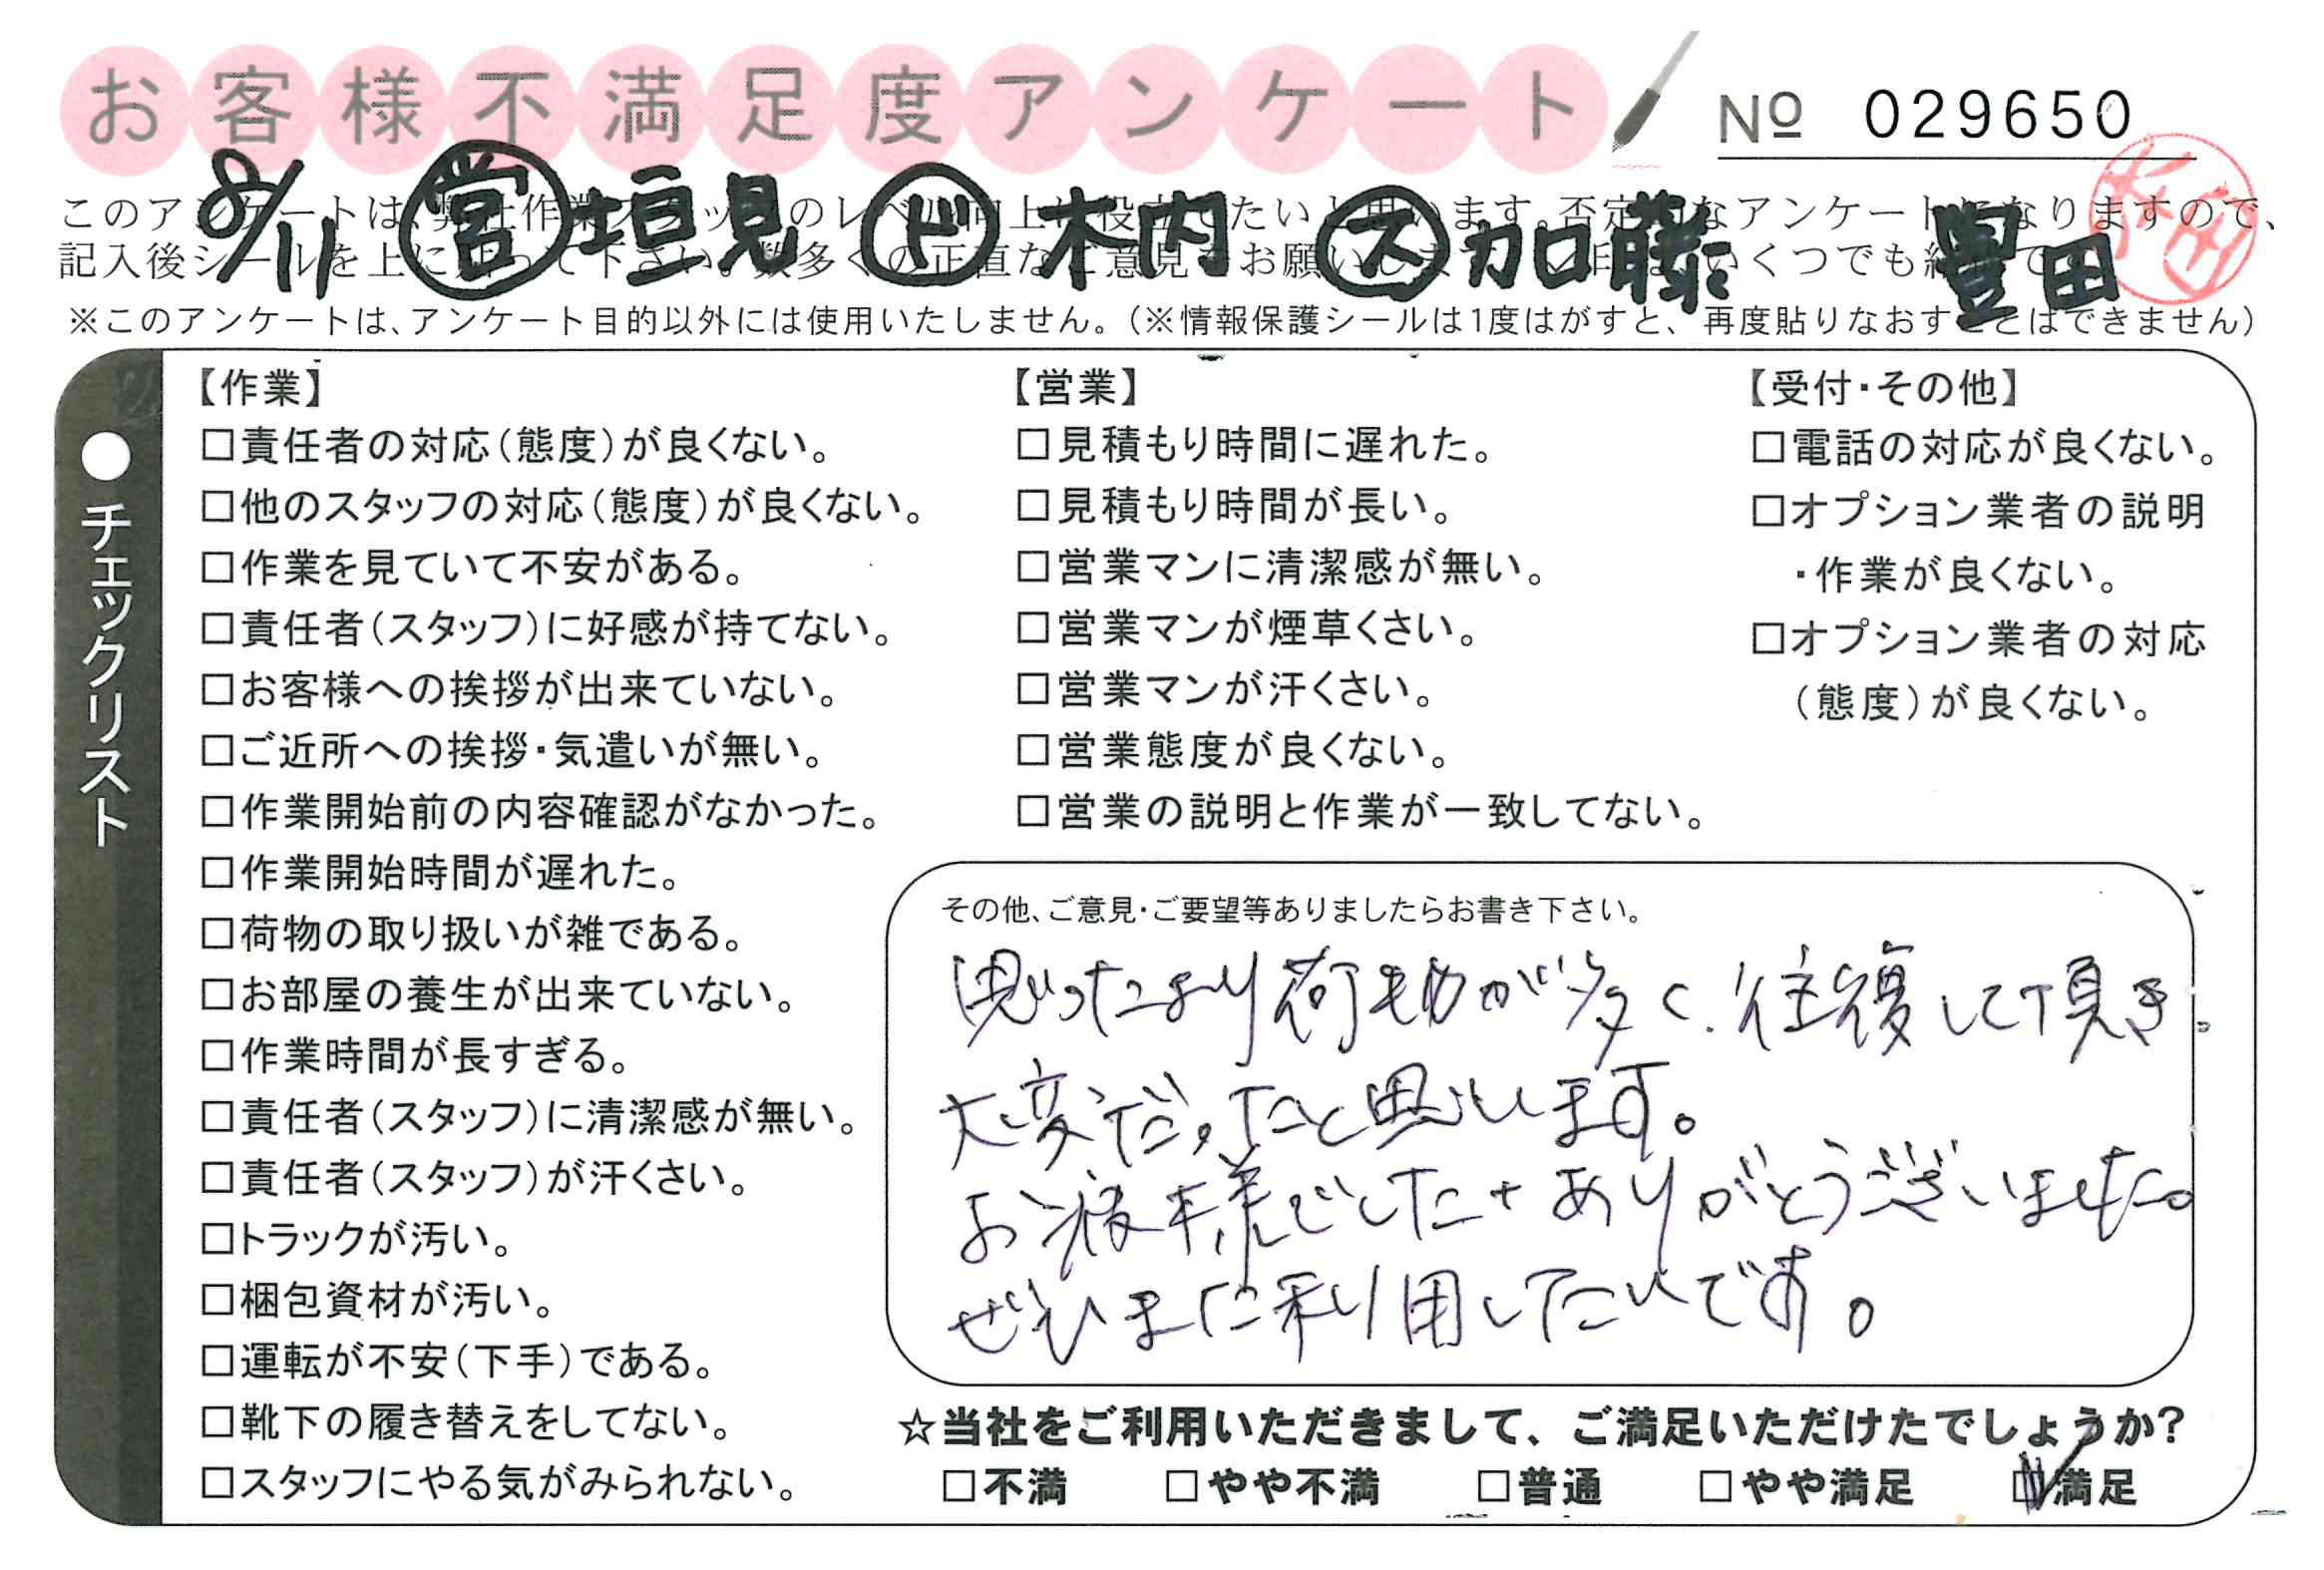 お客様不満足度アンケート
No 029650
8/11 営 垣見 ド 木内 ス 加藤 豊田
このアンケートは、弊社作業スタッフのレベル向上に役立てたいと思います。否定的なアンケートになりますので、
記入後シールを上に貼って下さい。数多くの正直なご意見をお願いします。
※このアンケートは、アンケート目的以外には使用いたしません。（※情報保護シールは1度はがすと、再度貼りなおすことはできません）
●チェックリスト
【作業】
□責任者の対応（態度）が良くない。
□他のスタッフの対応（態度）が良くない。
□作業を見ていて不安がある。
□責任者（スタッフ）に好感が持てない。
□お客様への挨拶が出来ていない。
□ご近所への挨拶・気遣いが無い。
□作業開始前の内容確認がなかった。
□作業開始時間が遅れた。
□荷物の取り扱いが雑である。
□お部屋の養生が出来ていない。
□作業時間が長すぎる。
□責任者（スタッフ）に清潔感が無い。
□責任者（スタッフ）が汗くさい。
□トラックが汚い。
□梱包資材が汚い。
□運転が不安（下手）である。
□靴下の履き替えをしてない。
□スタッフにやる気がみられない。
【営業】
□見積もり時間に遅れた。
□見積もり時間が長い。
□営業マンに清潔感が無い。
□営業マンが煙草くさい。
□営業マンが汗くさい。
□営業態度が良くない。
□営業の説明と作業が一致してない。
【受付・その他】
□電話の対応が良くない。
□オプション業者の説明
・作業が良くない。
□オプション業者の対応
（態度）が良くない。
その他、ご意見・ご要望等ありましたらお書き下さい。
思ったより荷物が多く、往復して頂き、
大変だったと思います。
お疲れ様でした＋ありがとうございました。
ぜひまたに利用したいです。
☆当社をご利用いただきまして、ご満足いただけたでしょうか？
□不満 □やや不満 □普通 □やや満足 ☑満足